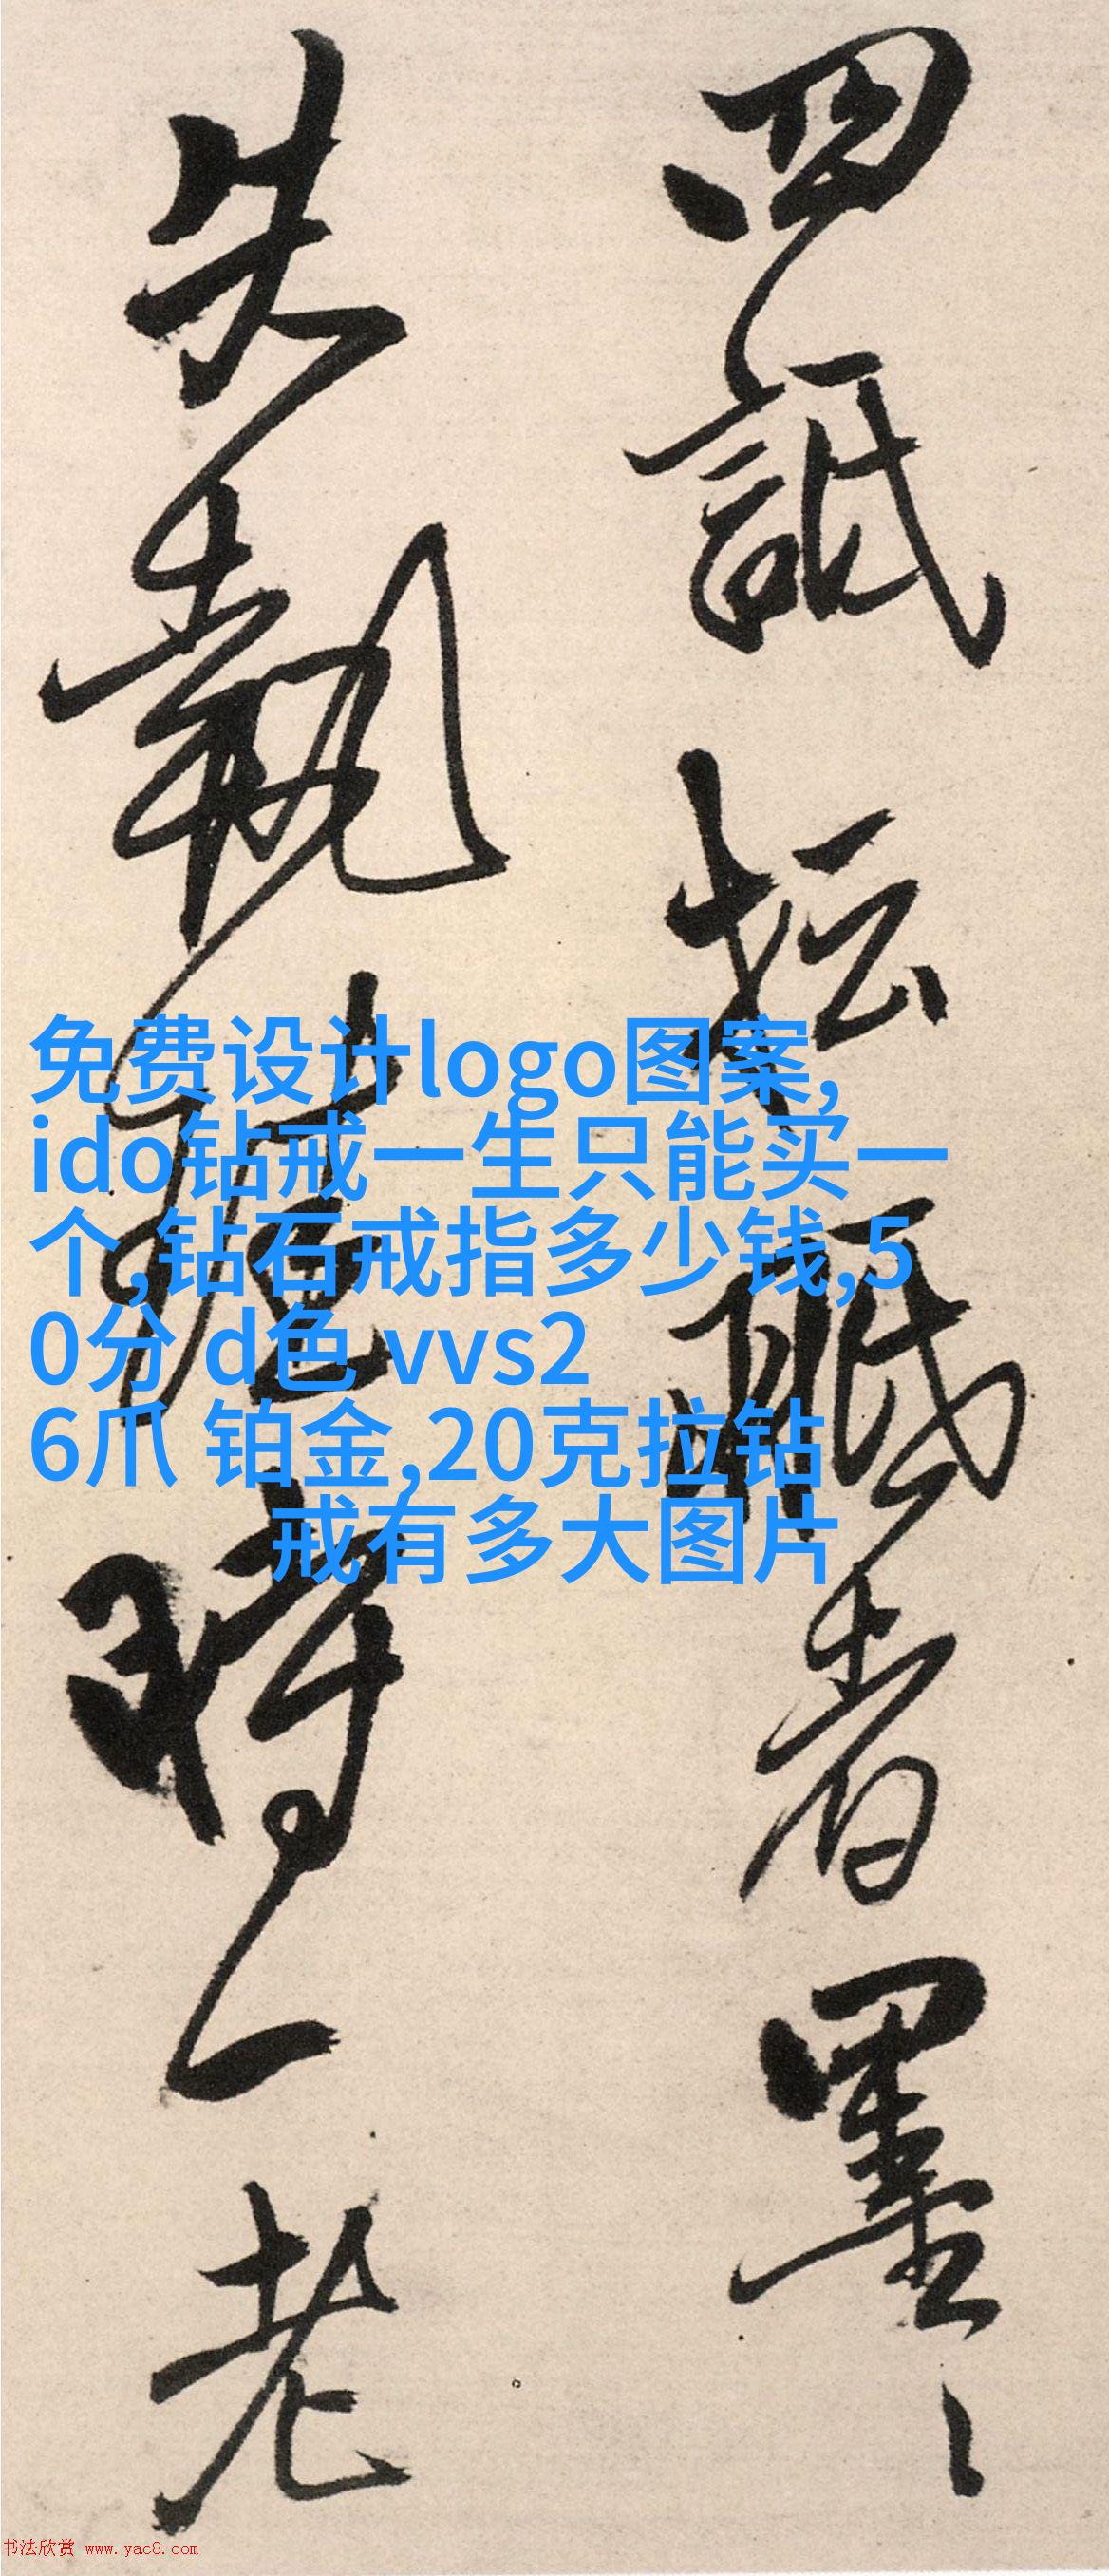 四詆坛者墨
失執時一老
免费设计logo图案,
ido钻戒一生只能买一
个,钻石戒指多少钱,5
0分 d色 vvs2
6爪 铂金,20克拉钻
戒有多大图片
书法欣赏 www.yac8.com